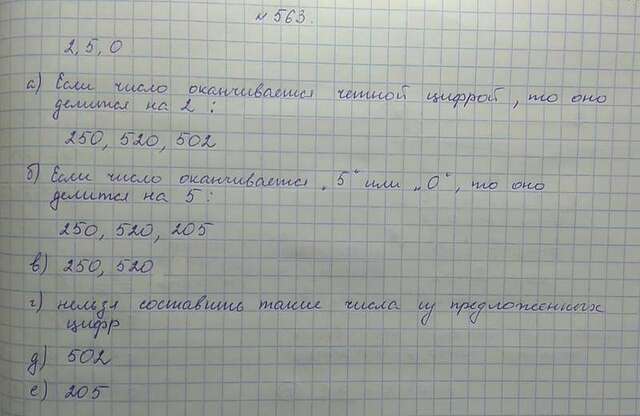 № 563.
2, 5, 0
а) Если число оканчивается четной цифрой, то оно
делится на 2:
250, 520, 502
б) Если число оканчивается „5“ или „0“, то оно
делится на 5:
250, 520, 205
в) 250, 520
г) нельзя составить такие числа из предложенных
цифр
д) 502
е) 205